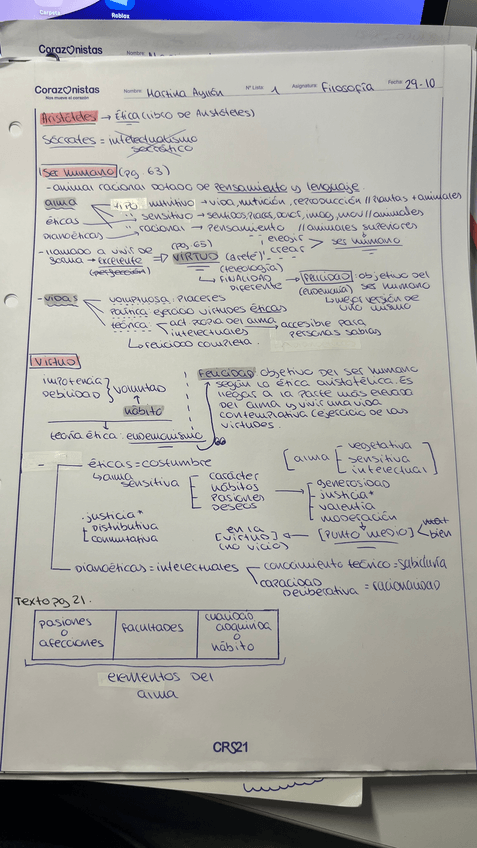 Carpeta
Roblox
Corazonistas
Nombre:
Corazonistas
Nos mueve el corazón
Nombre: Martina Ayllón Nº Lista: 1 Asignatura: Filosofía Fecha: 29-10
Aristóteles → Ética (libro de Aristóteles)
Sócrates = intelectualismo
socrático
Ser humano (pg 63)
- animal racional dotado de pensamiento y lenguaje.
alma
nutritivo → vida, nutrición, reproducción // Plantas + animales
éticas
sensitivo → sentidos, placer, dolor, imag, mov // animales
Dianoéticas
racional → pensamiento // animales superiores
elegir
crear > ser humano
- llamado a vivir de
forma → excelente ⇒ VIRTUD (Areté)
(perfección)
(pg 65)
(teleología)
↳ FINALIDAD
Diferente
→ FELICIDAD: objetivo del
(eudemonía) ser humano
↳ mejor versión de
uno mismo
- vidas
voluptuosa: placeres
política: ejercicio virtudes éticas
teórica: act propia del alma
intelectuales
> accesible para
personas sabias
↳ felicidad completa
Virtud
impotencia
debilidad } voluntad
hábito
teoría ética: eudemonismo
FELICIDAD objetivo del ser humano
según la ética aristotélica. Es
llegar a la parte más elevada
del alma y vivir una vida
contemplativa (ejercicio de las
virtudes.
éticas = costumbre
↳ alma
sensitiva
carácter
hábitos
pasiones
deseos
[alma
vegetativa
sensitiva
intelectual]
generosidad
justicia*
valentía
moderación
[PUNTO MEDIO]
mal
bien
en la
[virtud]
(no vicio)
. justicia*
distributiva
conmutativa
Dianoéticas = intelectuales
conocimiento técnico = sabiduría
capacidad
deliberativa = racionalidad
Texto pg 21.
pasiones
o
afecciones
facultades
cualidad
adquirida
o
hábito
elementos del
alma
CRS21